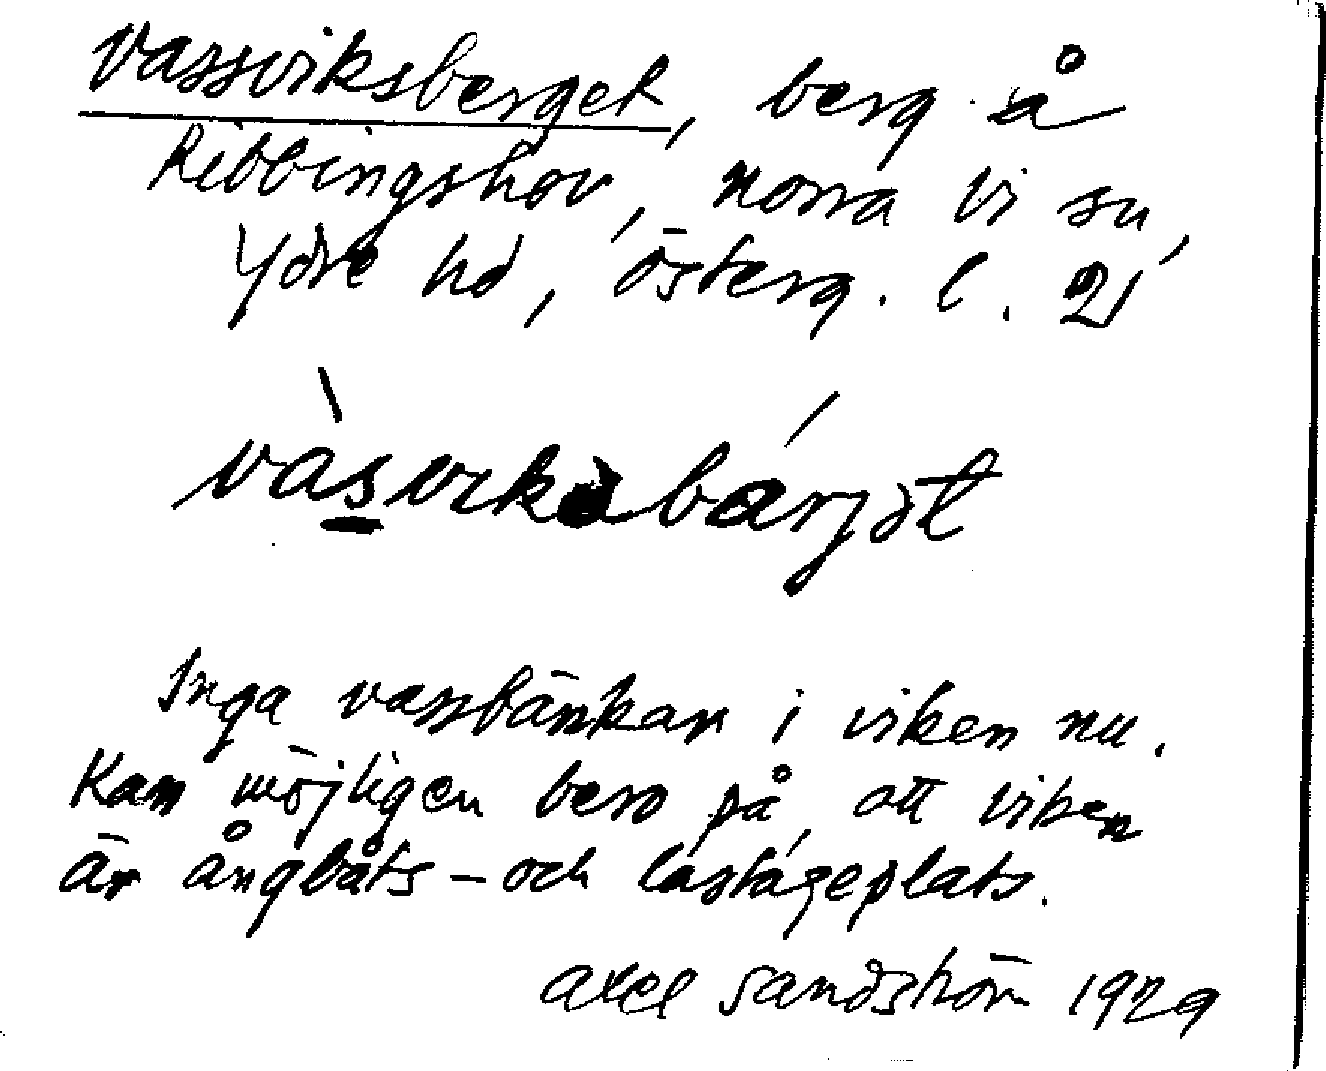 Vassviksberget, berg å
Ribbingshov, norra vi sn,
Ydre hd, Österg. l. 21
vàsviksbärjət
Inga vassbänkar i viken nu.
Kan möjligen bero på, att viken
är ångbåts- och lastageplats.
Axel Sandström 1929